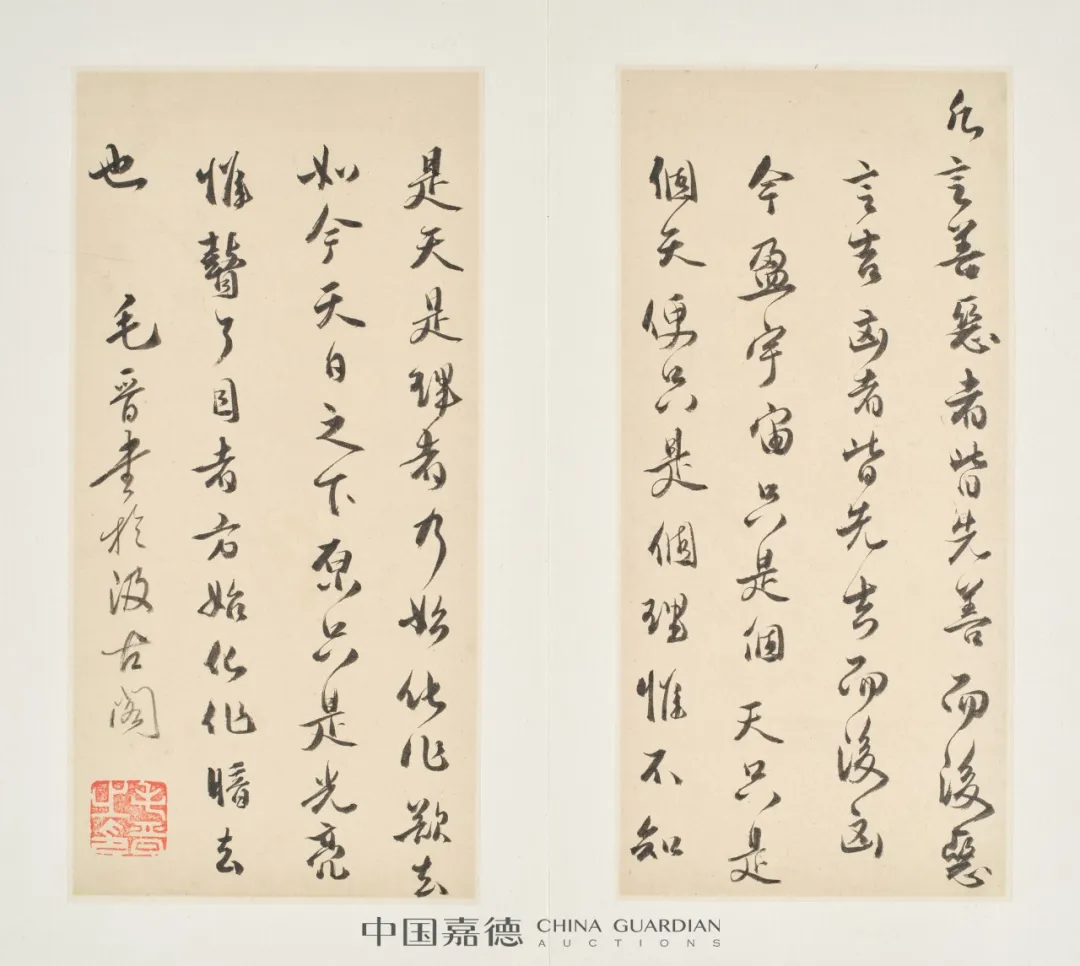 凡言善惡者皆先善而後惡
言吉凶者皆先吉而後凶
今盈宇宙只是個天只是
個天便只是個理惟不知
是天是理者乃始化作去
如今天日之下原只是光亮
惟瞽了目者方始化作暗去
也 毛晋書於汲古閣
中国嘉德 CHINA GUARDIAN
AUCTIONS